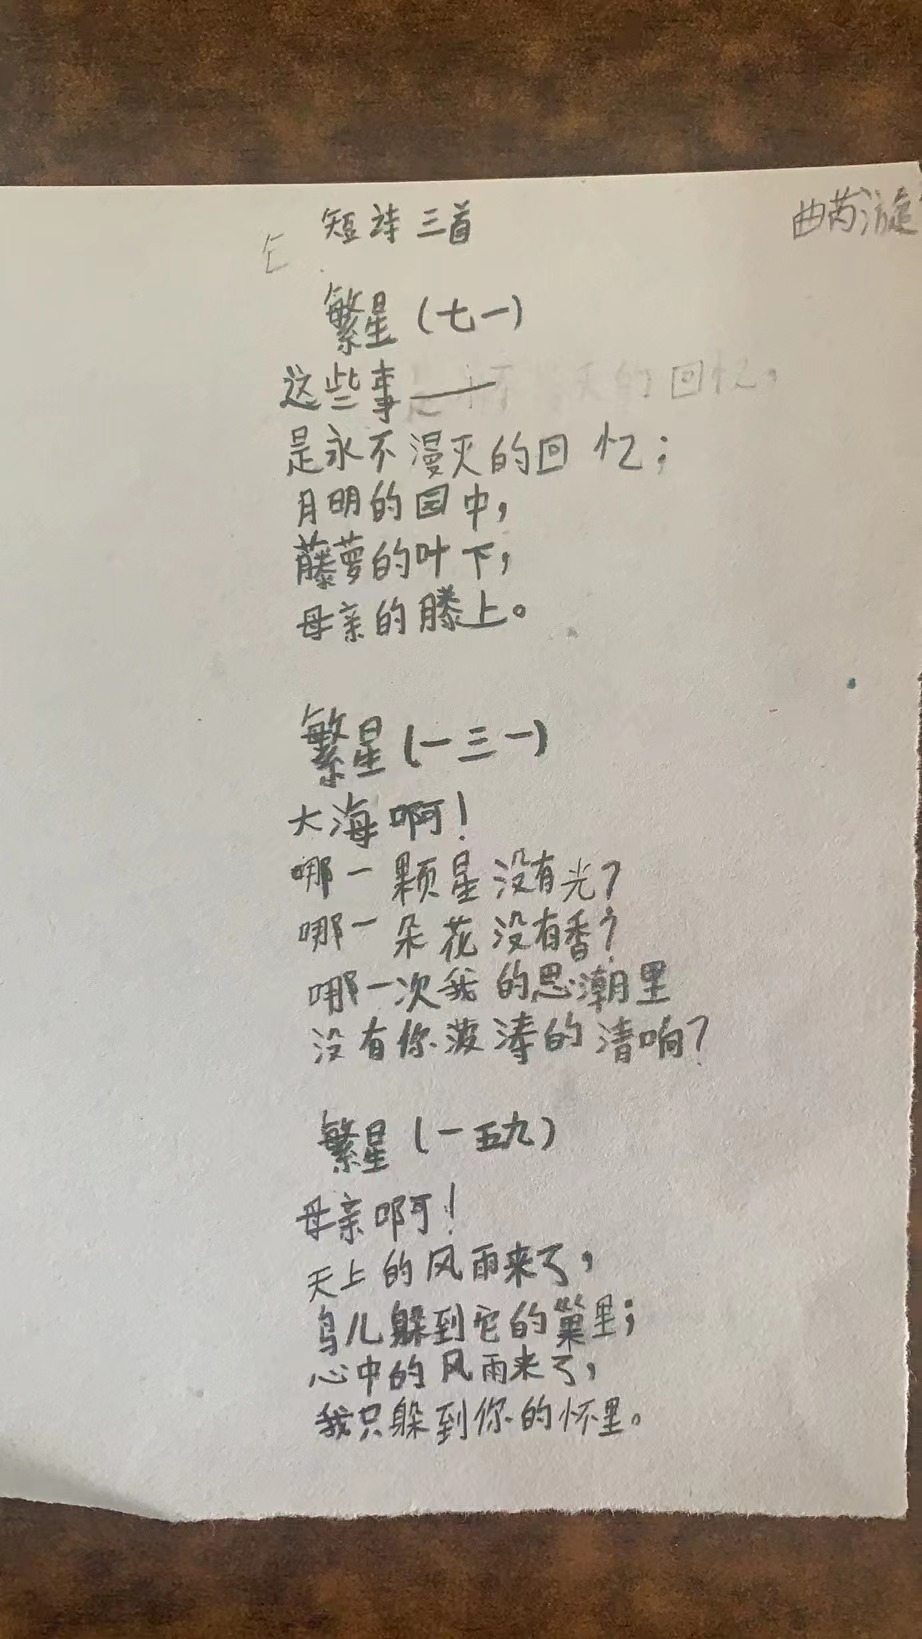 短诗三首
曲芮漩
繁星(七一)
这些事——
是永不漫灭的回忆;
月明的园中,
藤萝的叶下,
母亲的膝上。
繁星(一三一)
大海啊!
哪一颗星没有光?
哪一朵花没有香?
哪一次我的思潮里
没有你波涛的清响?
繁星(一五九)
母亲啊!
天上的风雨来了,
鸟儿躲到它的巢里;
心中的风雨来了,
我只躲到你的怀里。